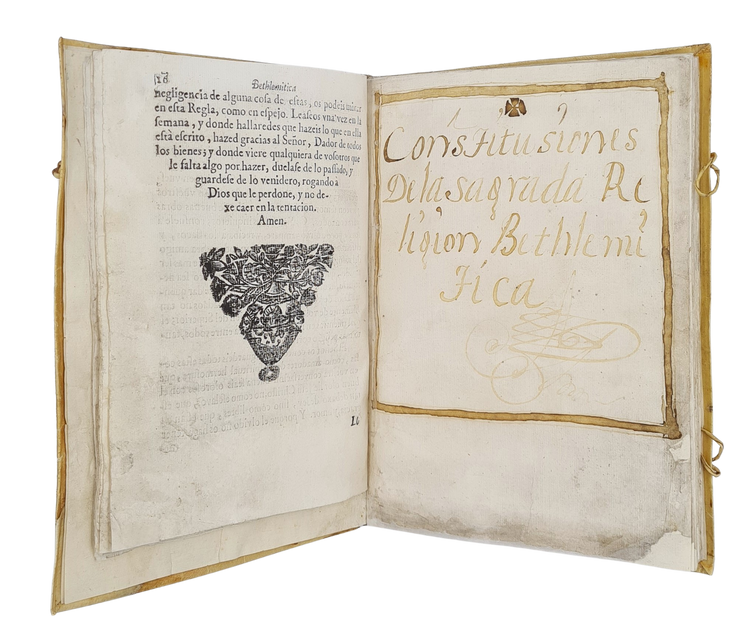 18
Bethlemitica
negligencia de alguna cosa de estas, os podeis mirar
en esta Regla, como en espejo. Leaseos vna vez en la
semana, y donde hallaredes que hazeis lo que en ella
està escrito, hazed gracias al Señor, Dador de todos
los bienes; y donde viere qualquiera de vosotros que
le falta algo por hazer, duelase de lo passado, y
guardese de lo venidero, rogando à
Dios que le perdone, y no de-
xe caer en la tentacion.
Amen.
Constitusiones
De la sagrada Re
ligion Bethlemi
tica